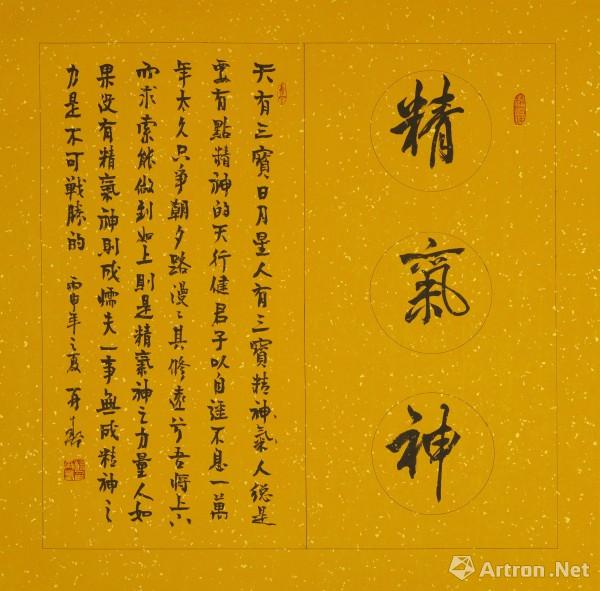 精氣神
天有三寶日月星人有三寶精神氣人總是
要有點精神的天行健君子以自強不息一萬
年太久只爭朝夕路漫〻其修遠兮吾將上下
而求索能做到如上則是精氣神之力量人如
果沒有精氣神則成懦夫一事無成精神之
力是不可戰勝的 丙申年之夏
Artron.Net